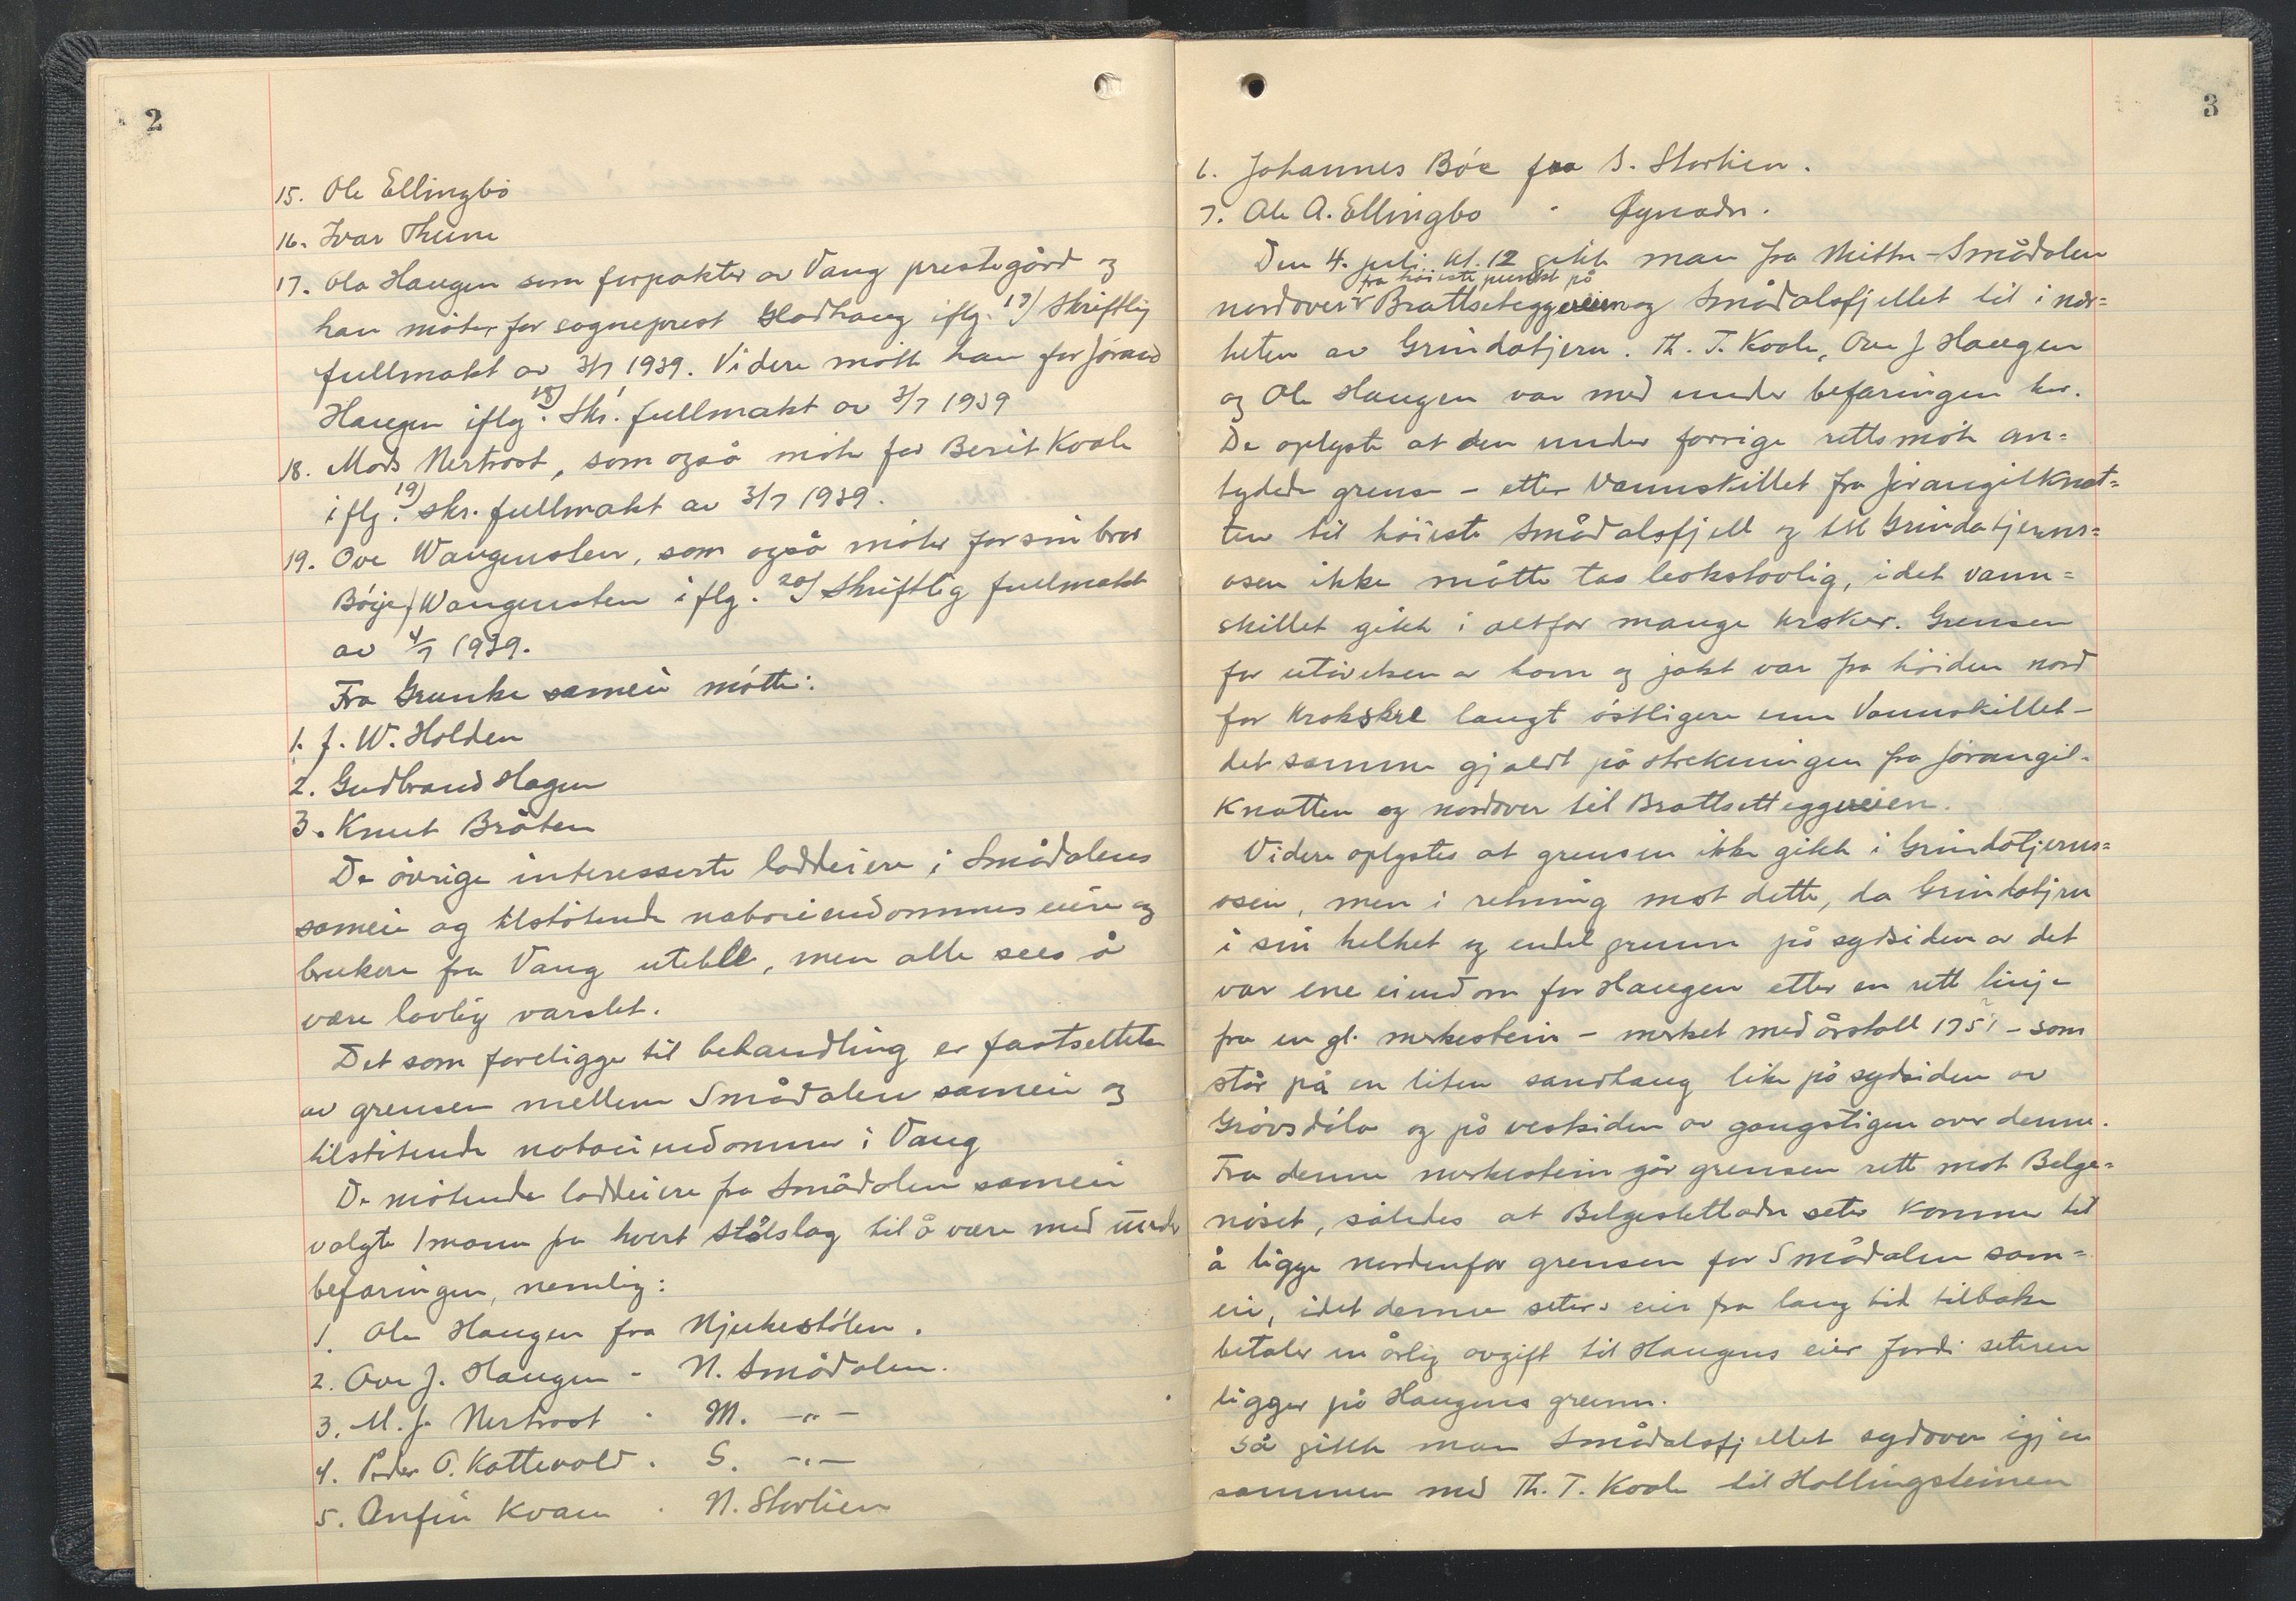 2
15. Ole Ellingbø
16. Ivar Thune
17. Ola Haugen som forpakter av Vang prestegård og
han møter for sogneprest Gladhaug iflg. 17) Skriftlig
fullmakt av 3/7 1939. Videre møtte han for Jørand
Haugen iflg. 18) Skr. fullmakt av 3/7 1939
18. Mads Nertrost, som også møter for Berit Kvale
iflg. 19) skr. fullmakt av 3/7 1939.
19. Ove Wangensten, som også møter for sin bror
Børje Wangensten iflg. 20) Skriftlig fullmakt
av 4/7 1939.
Fra Grunke sameie møtte:
1. J. W. Holden
2. Gudbrand Hagen
3. Knut Bråten
De øvrige interesserte loddeiere i Smådalens
sameie og tilstøtende naboeiendommes eiere og
brukere fra Vang uteble, men alle sees å
være lovlig varslet.
Det som foreligger til behandling er fastsettelse
av grensen mellem Smådalen sameie og
tilstøtende naboeiendommer i Vang
De møtende loddeiere fra Smådalen sameie
valgte 1 mann fra hvert stølslag til å være med under
befaringen, nemlig:
1. Ole Haugen fra Njukestølen.
2. Ove J. Haugen - N. Smådalen.
3. M. J. Nertrost - M. -"-
4. Peder O. Kattevold - S. -"-
5. Anfin Kvam - N. Stortien
3
6. Johannes Bøe fra S. Stortien.
7. Ole A. Ellingbø "
Den 4. juli kl. 12 gikk man fra Mittre-Smådalen
fra høieste punkt på
nordover Brattseteggveien og Smådalsfjellet til i nær=
heten av Grindatjern. Th. T. Kvale, Ove J Haugen
og Ole Haugen var med under befaringen her.
De oplyste at den under forrige rettsmøte an=
tydede grense - etter vannskillet fra Jørangilknat=
ten til høieste Smådalsfjell og til Grindatjerns=
osen ikke måtte tas bokstavlig, idet vann=
skillet gikk i altfor mange kroker. Grensen
for utøvelsen av havn og jakt var fra høiden nord
for Krokskre langt østligere enn Vannskillet -
det samme gjaldt på strekningen fra Jørangil-
Knatten og nordover til Brattsetteggveien.
Videre oplystes at grensen ikke gikk i Grindatjerns=
osen, men i retning mot dette, da Grindatjern
i sin helhet og endel grunn på sydsiden av det
var ene eiendom for Haugen etter en rett linje
fra en gl. merkestein - merket med årstall 175? - som
står på en liten sandhaug like på sydsiden av
Grøvsdøla og på vestsiden av gangstigen over denne.
Fra denne merkestein går grensen rett mot Belge=
nøset, således at Belgeslettadn seter kommer til
å ligge nordenfor grensen for Smådalen sam=
eie, idet denne seters eier fra lang tid tilbake
betaler en årlig avgift til Haugens eier fordi seteren
ligger på Haugens grunn.
Så gikk man Smådalsfjellet sydover igjen
sammen med Th. T. Kvale til Hallingsteinen